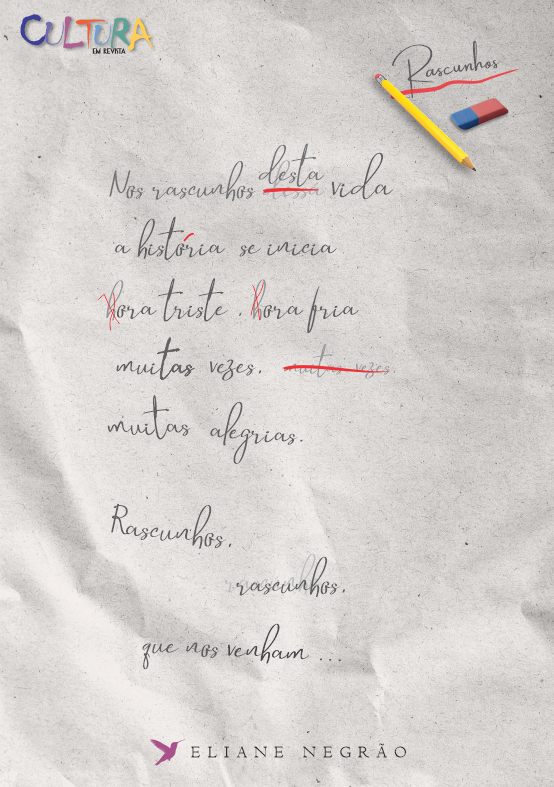 CULTURA
EM REVISTA
Rascunhos
Nos rascunhos desta vida
a história se inicia
hora triste . hora fria
muitas vezes. muitas vezes.
muitas alegrias.
Rascunhos.
rascunhos.
que nos venham ...
ELIANE NEGRÃO